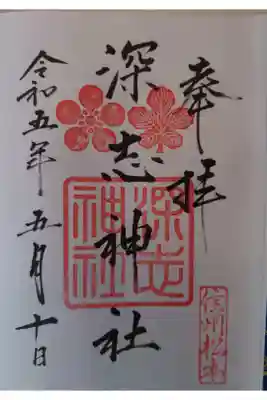 奉拝
深志神社
深志
神社
信州松本
令和五年五月十日